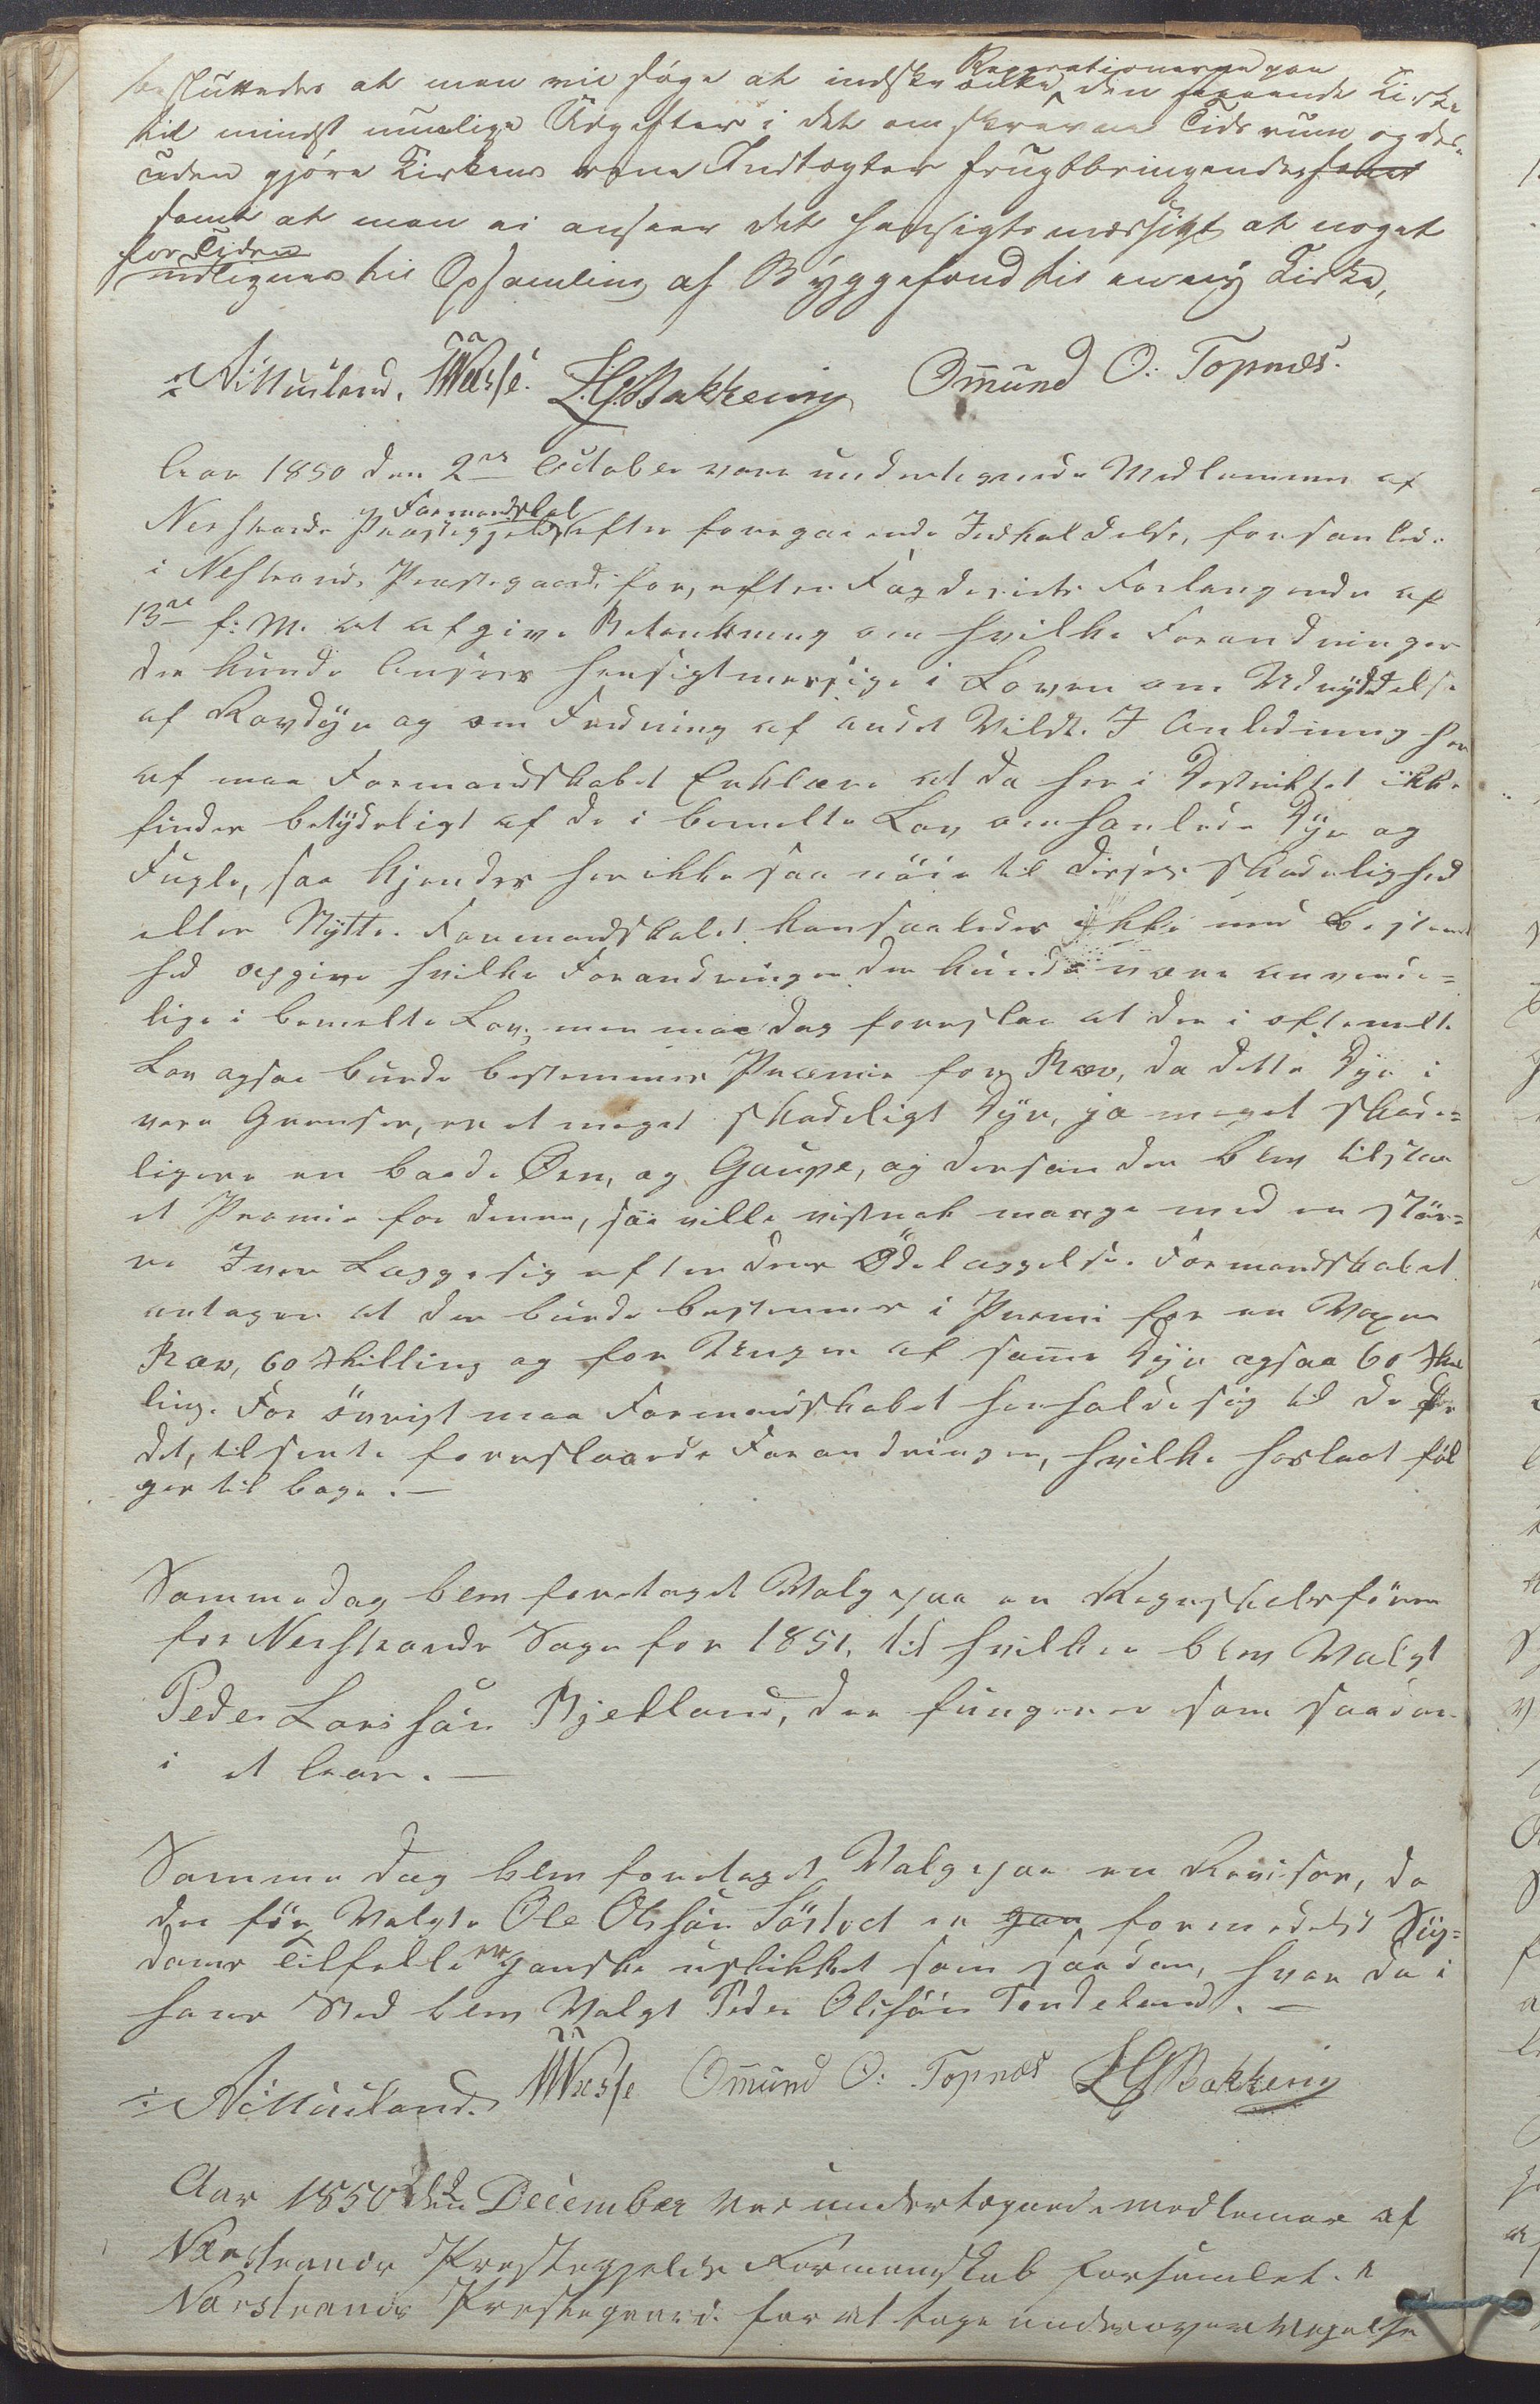 besluttedes at man vil søge at indskrænke Reparationerne paa den staaende Kirke
til mindst muelige Udgifter i det omskrevne Tidsrum og des-
uden gjøre Kirkens rene Indtægter frugtbringende samt
samt at man ei anseer det hensigtsmæssigt at noget
for Tiden
udlignes til Opsamling af Byggefond til en ny Kirke,
Omund O. Topnes.
Aar 1850 den 2den October vare undertegnede Medlemmer af
Nerstrands Præstegjelds Formandskab efter foregaaende Indkaldelse, forsamlede
i Nestrands Præstegaard, for, efter Fogderiets Forlangende af
13de f: M. at afgive Betænkning om hvilke Forandringer
der kunde Ansees hensigtmessige i Loven om Udryddelse
af Rovdyr og om Fredning af andet Vildt. I Anledning her
af maa Formandskabet Erklære at da her i Destriktet ikke
findes betydeligt af de i bemelte Lov omhanlede Dyr og
Fugle, saa kjendes her ikke saa nöie til disses skadelighed
eller Nytte. Formandskabet kan saaledes ikke med Bestemt
hed opgive hvilke Forandringer der kunde være anvende-
lige i bemelte Lov; men maa dog foreslaae at der i oftemelte
Lov ogsaa burde bestemmes Præmie for Ræv, da dette Dyr i
vore Grenser, er et meget skadeligt Dyr, ja meget skade-
ligere en baade Örn, og Gaupe, og dersom der blev tilstaa
et Premie for denne, saa ville vistnok mange med en stör-
re Iver Legge sig efter dens Ödeleggelse. Formandskabet
antager at der burde bestemmes i Premi for en Voxen
Ræv, 60 skilling og for Unger af samme Dyr ogsaa 60 skil
ling. For övrigt maa Formandskabet henholde sig til de for
det, tilsente foreslaaede Forandringer, hvilke hoslagt föl
ger til bage. —
Samme dag blev foretaget Valg paa en Regnskabsförer
for Nerstrands Sogn for 1851, til hvilken blev Valgt
Peder Larssön Bjelland, der fungerer som saadan
i et Aar. —
Samme dag blev foretaget Valg paa en Revisor, da
den för Valgte Ole Olssön er formedelst Syg-
doms Tilfelde er ganske uskikket som saadan, hvor da i
hans Sted blev Valgt Peder Olssön Tendeland. —
Omund O: Topnes
Aar 1850 den December var undertegnede medlemer af
Nærstrands Prestegjelds Formanskab forsamlet i
Nærstrands Prestegaard for at tage under overveielse